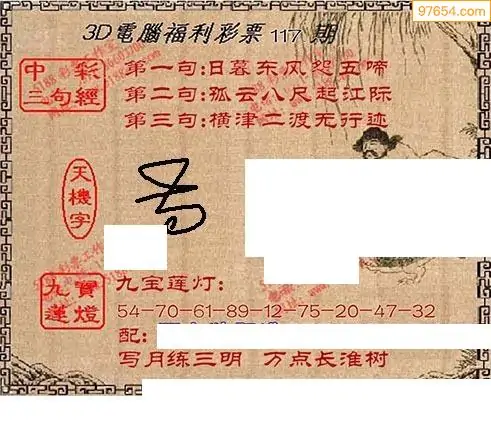 97654.com
3D電腦福利彩票 117 期
中彩三句經
第一句:日暮东风怨五啼
第二句:孤云八尺起江际
第三句:横津二渡无行迹
天機字
九寶蓮燈
九宝莲灯:
54-70-61-89-12-75-20-47-32
配:
写月练三明 万点长淮树